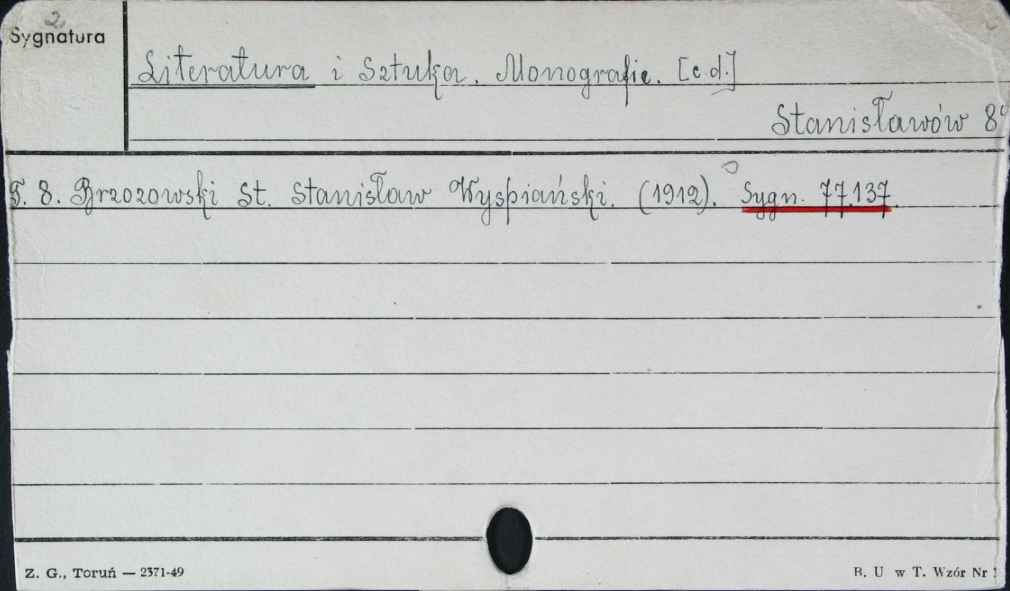 2.
Sygnatura
Literatura i Sztuka. Monografie. [c.d.]
Stanisławów 8°
T. 8. Brzozowski St. Stanisław Wyspiański. (1912). Sygn. 77.137.
Z. G., Toruń — 2371-49
B. U w T. Wzór Nr 1